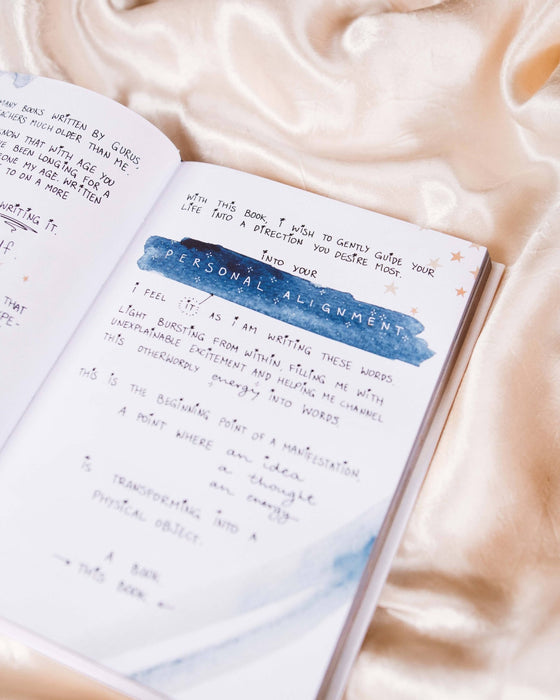 MANY BOOKS WRITTEN BY GURUS
TEACHERS MUCH OLDER THAN ME.
KNOW THAT WITH AGE YOU
BEEN LONGING FOR A
MY AGE. WRITTEN
TO ON A MORE
WRITING IT.
THAT
WITH THIS BOOK, I WISH TO GENTLY GUIDE YOUR
LIFE INTO A DIRECTION YOU DESIRE MOST.
INTO YOUR
PERSONAL ALIGNMENT
I FEEL AS I AM WRITING THESE WORDS.
LIGHT BURSTING FROM WITHIN, FILLING ME WITH
UNEXPLAINABLE EXCITEMENT AND HELPING ME CHANNEL
THIS OTHERWORDLY energy INTO WORDS.
THIS IS THE BEGINNING POINT OF A MANIFESTATION,
A POINT WHERE an idea
a thought
an energy
IS TRANSFORMING INTO A
PHYSICAL OBJECT.
A BOOK
THIS BOOK